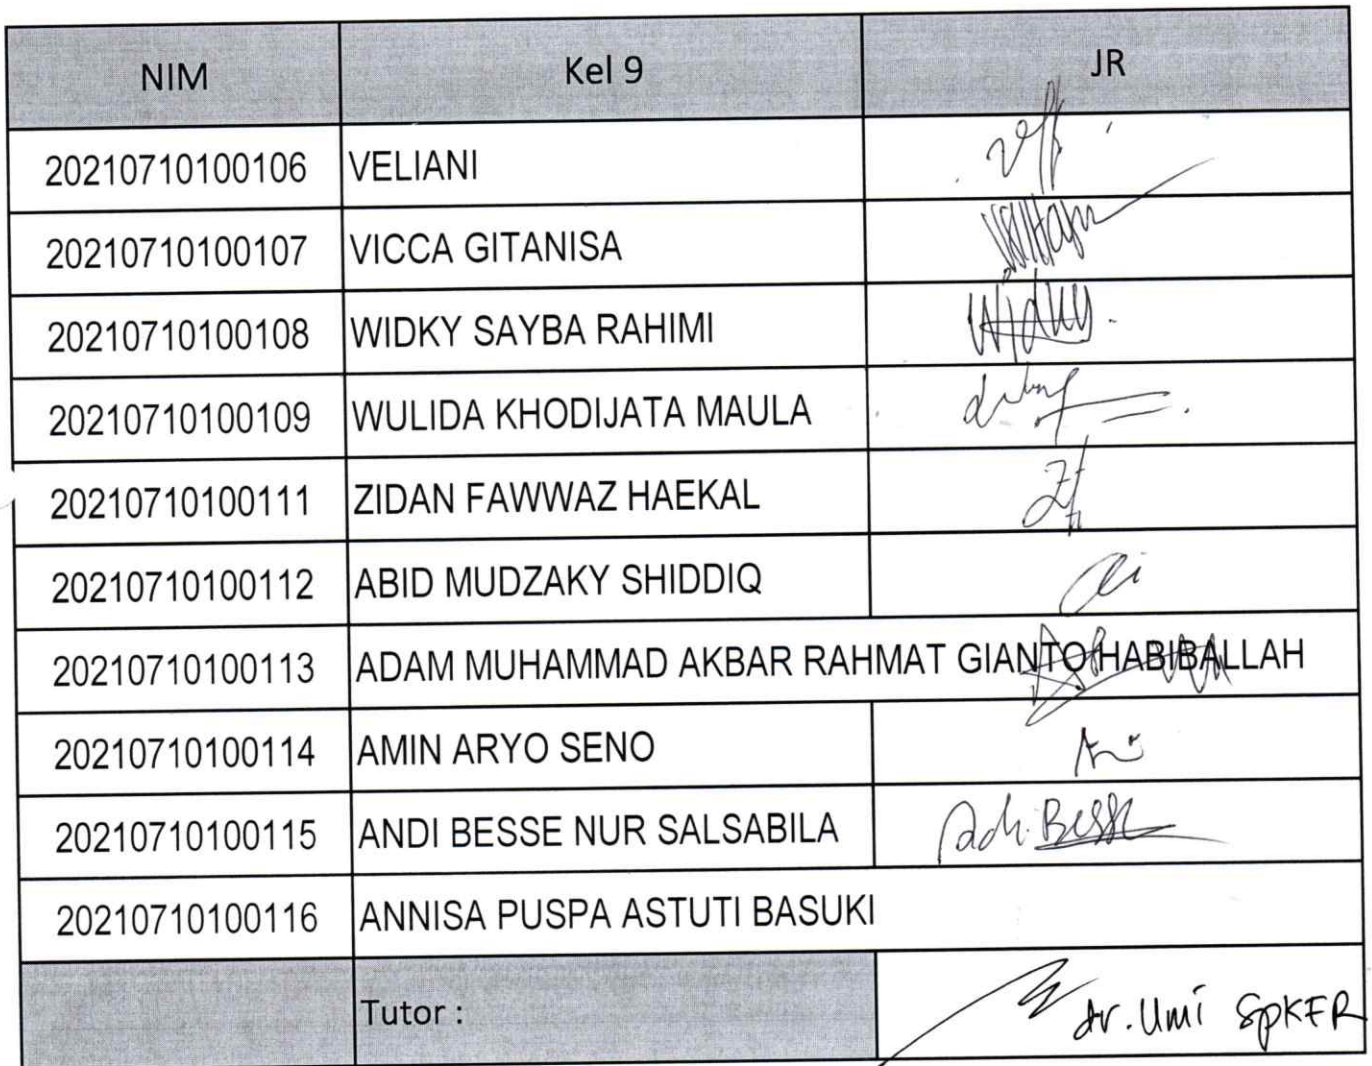 NIM Kel 9 JR
20210710100106 VELIANI
20210710100107 VICCA GITANISA
20210710100108 WIDKY SAYBA RAHIMI
20210710100109 WULIDA KHODIJATA MAULA
20210710100111 ZIDAN FAWWAZ HAEKAL
20210710100112 ABID MUDZAKY SHIDDIQ
20210710100113 ADAM MUHAMMAD AKBAR RAHMAT GIANTO HABIBALLAH
20210710100114 AMIN ARYO SENO
20210710100115 ANDI BESSE NUR SALSABILA
20210710100116 ANNISA PUSPA ASTUTI BASUKI
Tutor : dr. Umi SpKFR